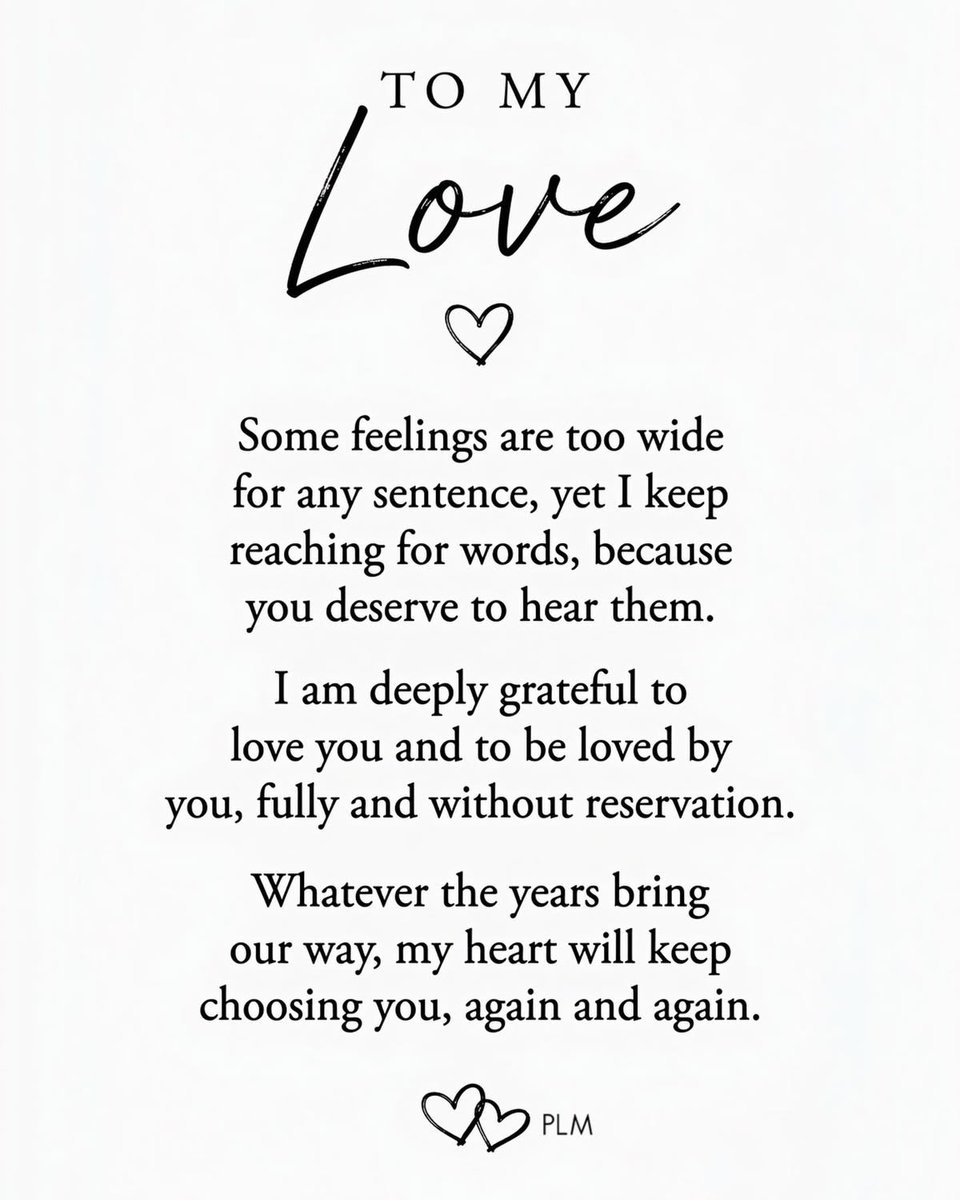 TO MY
Love
Some feelings are too wide
for any sentence, yet I keep
reaching for words, because
you deserve to hear them.
I am deeply grateful to
love you and to be loved by
you, fully and without reservation.
Whatever the years bring
our way, my heart will keep
choosing you, again and again.
PLM